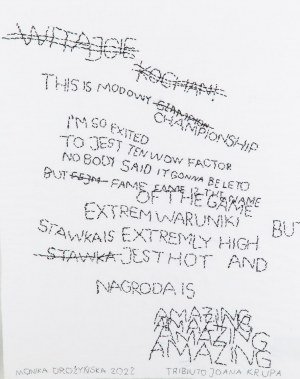 WITAJCIE
KOCHANI
THIS IS MODOWY CZAMPION
CHAMPIONSHIP
I'M SO EXITED
TO JEST TEN WOW FACTOR
NOBODY SAID IT GONNA BE LETO
BUT FEJM FAME FAME IS THE NAME
OF THE GAME
EXTREM WARUNIKI BUT
STAWKA IS EXTREMLY HIGH
STAWKA JEST HOT AND
NAGRODA IS
AMAZING
AMAZING
AMAZING
AMAZING
MONIKA DROŻYŃSKA 2022 TRIBIUTO JOANA KRUPA